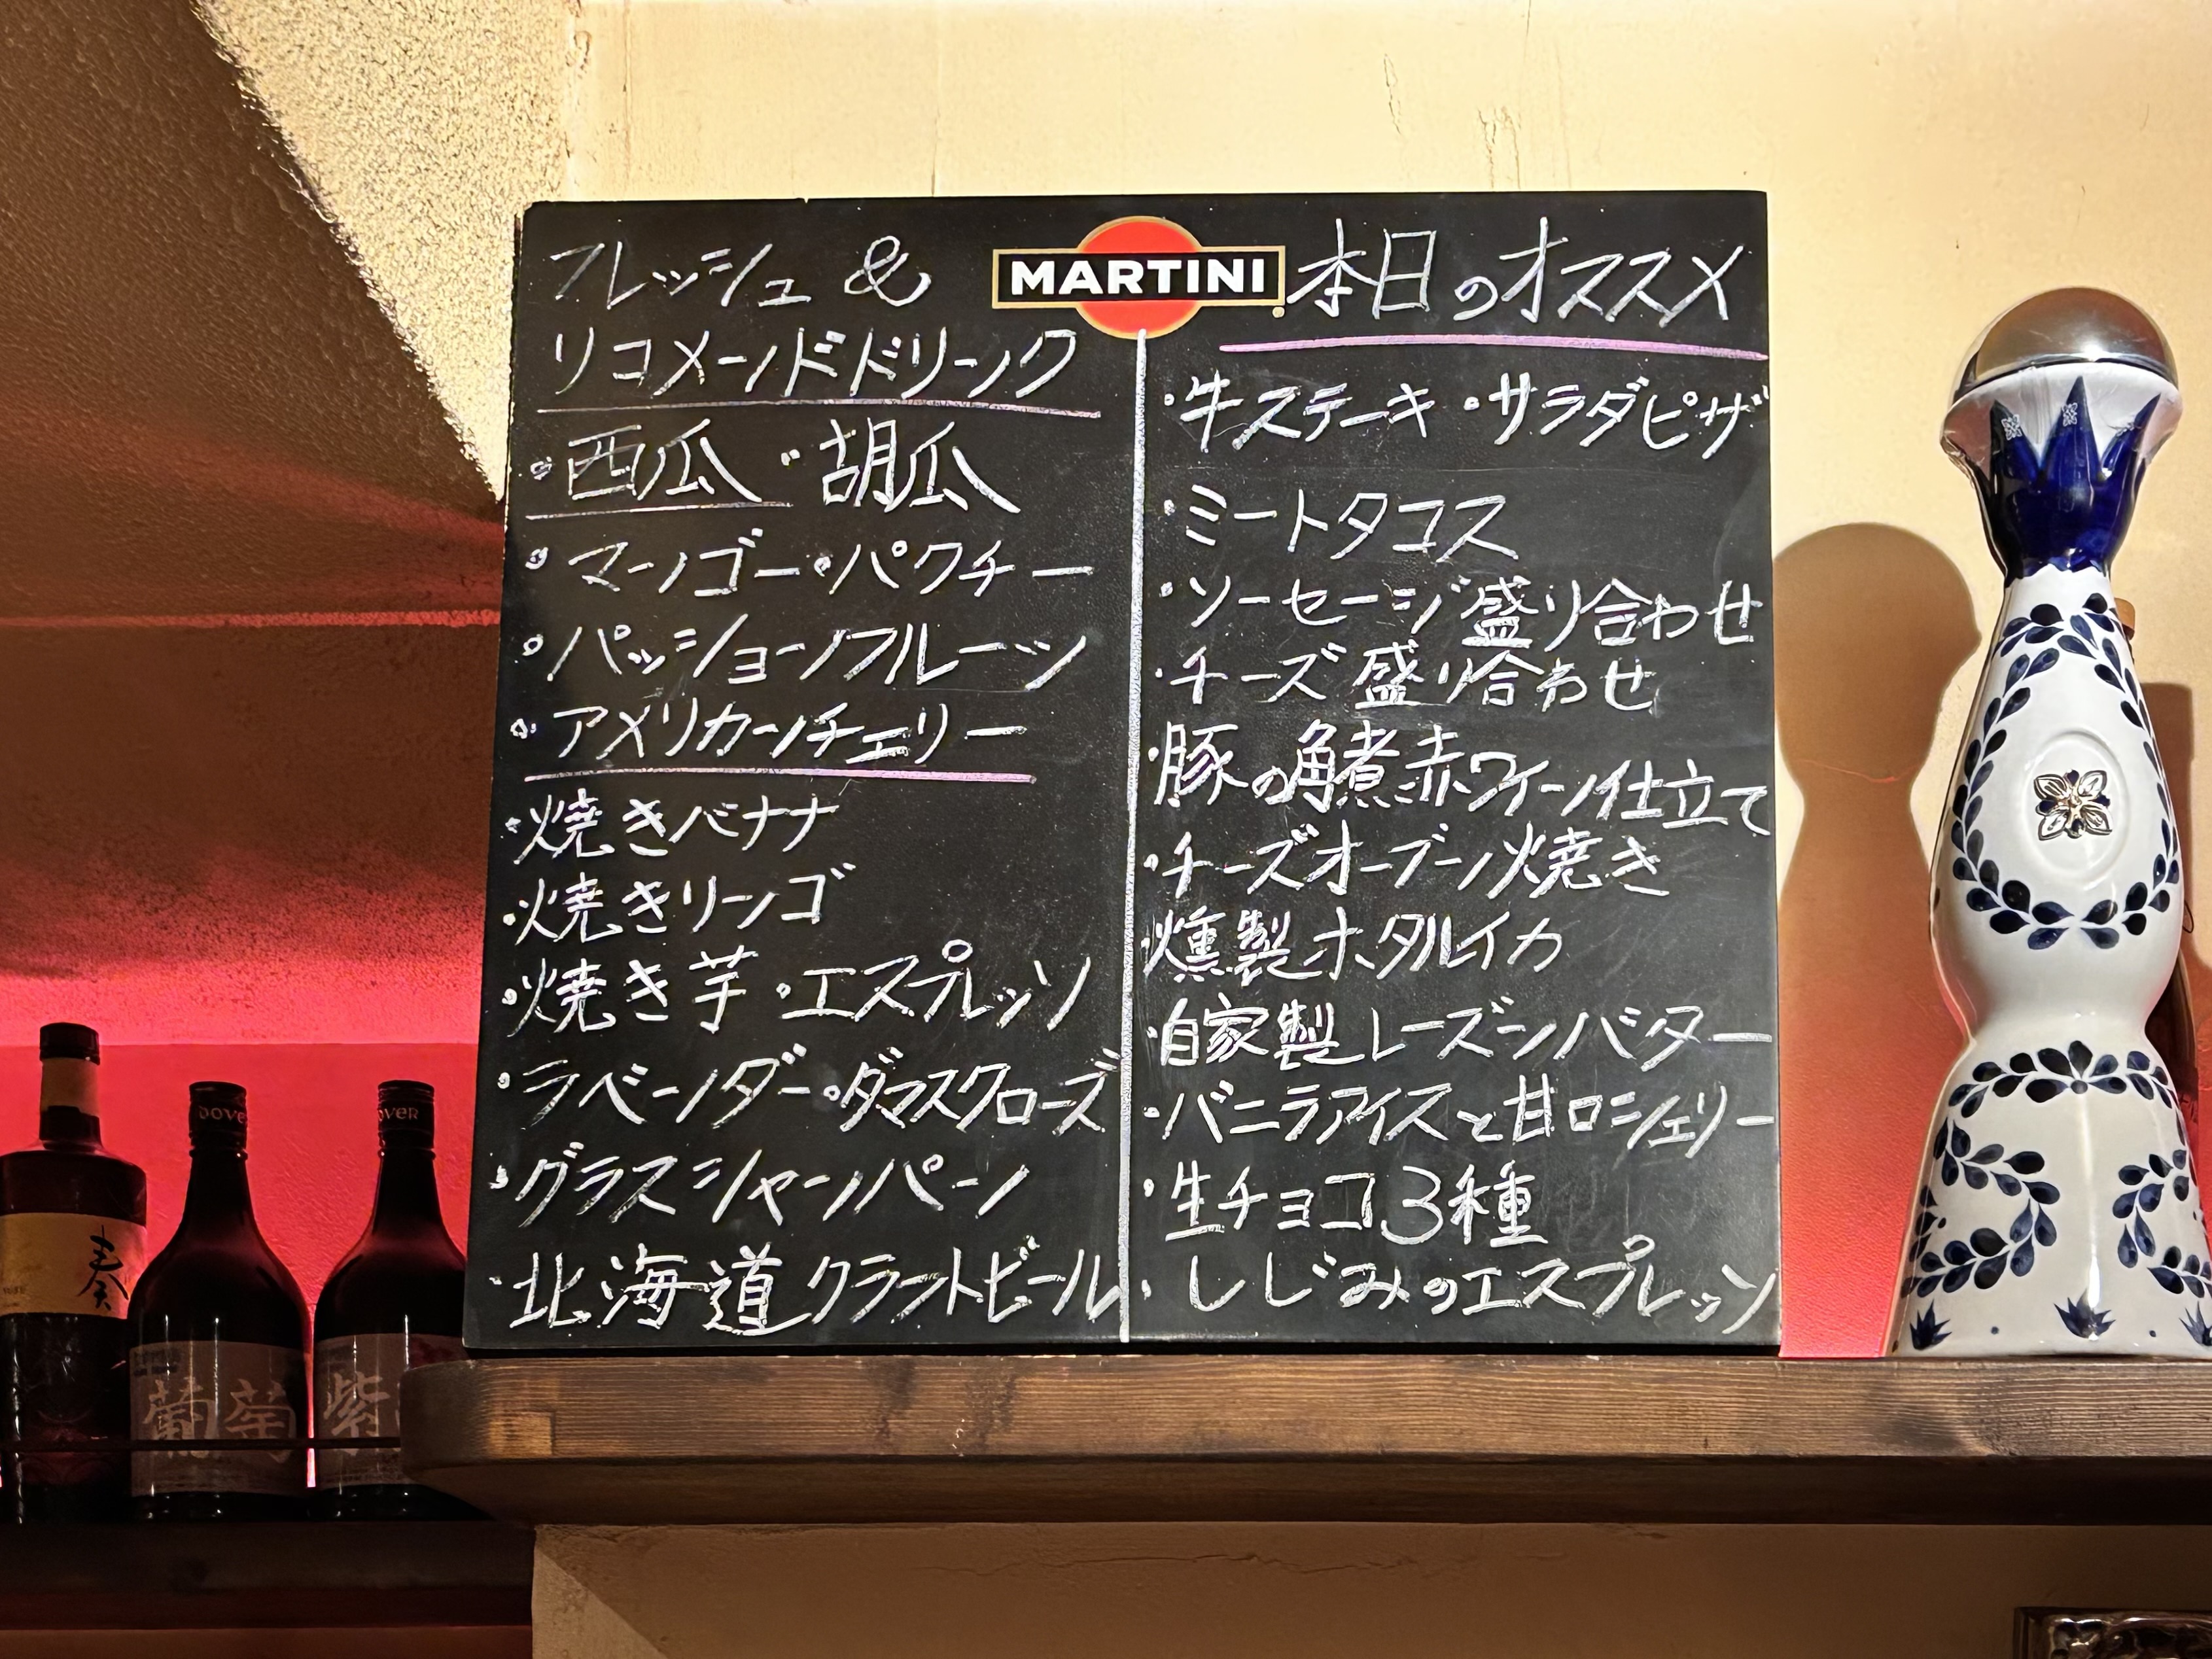 MARTINI
フレッシュ &
リコメンドドリンク
・西瓜 ・胡瓜
・マンゴー・パクチー
・パッションフルーツ
・アメリカンチェリー
・焼きバナナ
・焼きリンゴ
・焼き芋 ・エスプレッソ
・ラベンダー・ダマスクローズ
・グラスシャンパーン
・北海道クラフトビール
本日のオススメ
・牛ステーキ ・サラダピザ
・ミートタコス
・ソーセージ盛り合わせ
・チーズ盛り合わせ
・豚の角煮赤ワイン仕立て
・チーズオーブン焼き
・燻製ホタルイカ
・自家製レーズンバター
・バニラアイスと甘口シェリー
・生チョコ3種
・しじみのエスプレッソ
奏
DOVER
葡萄
DOVER
紫